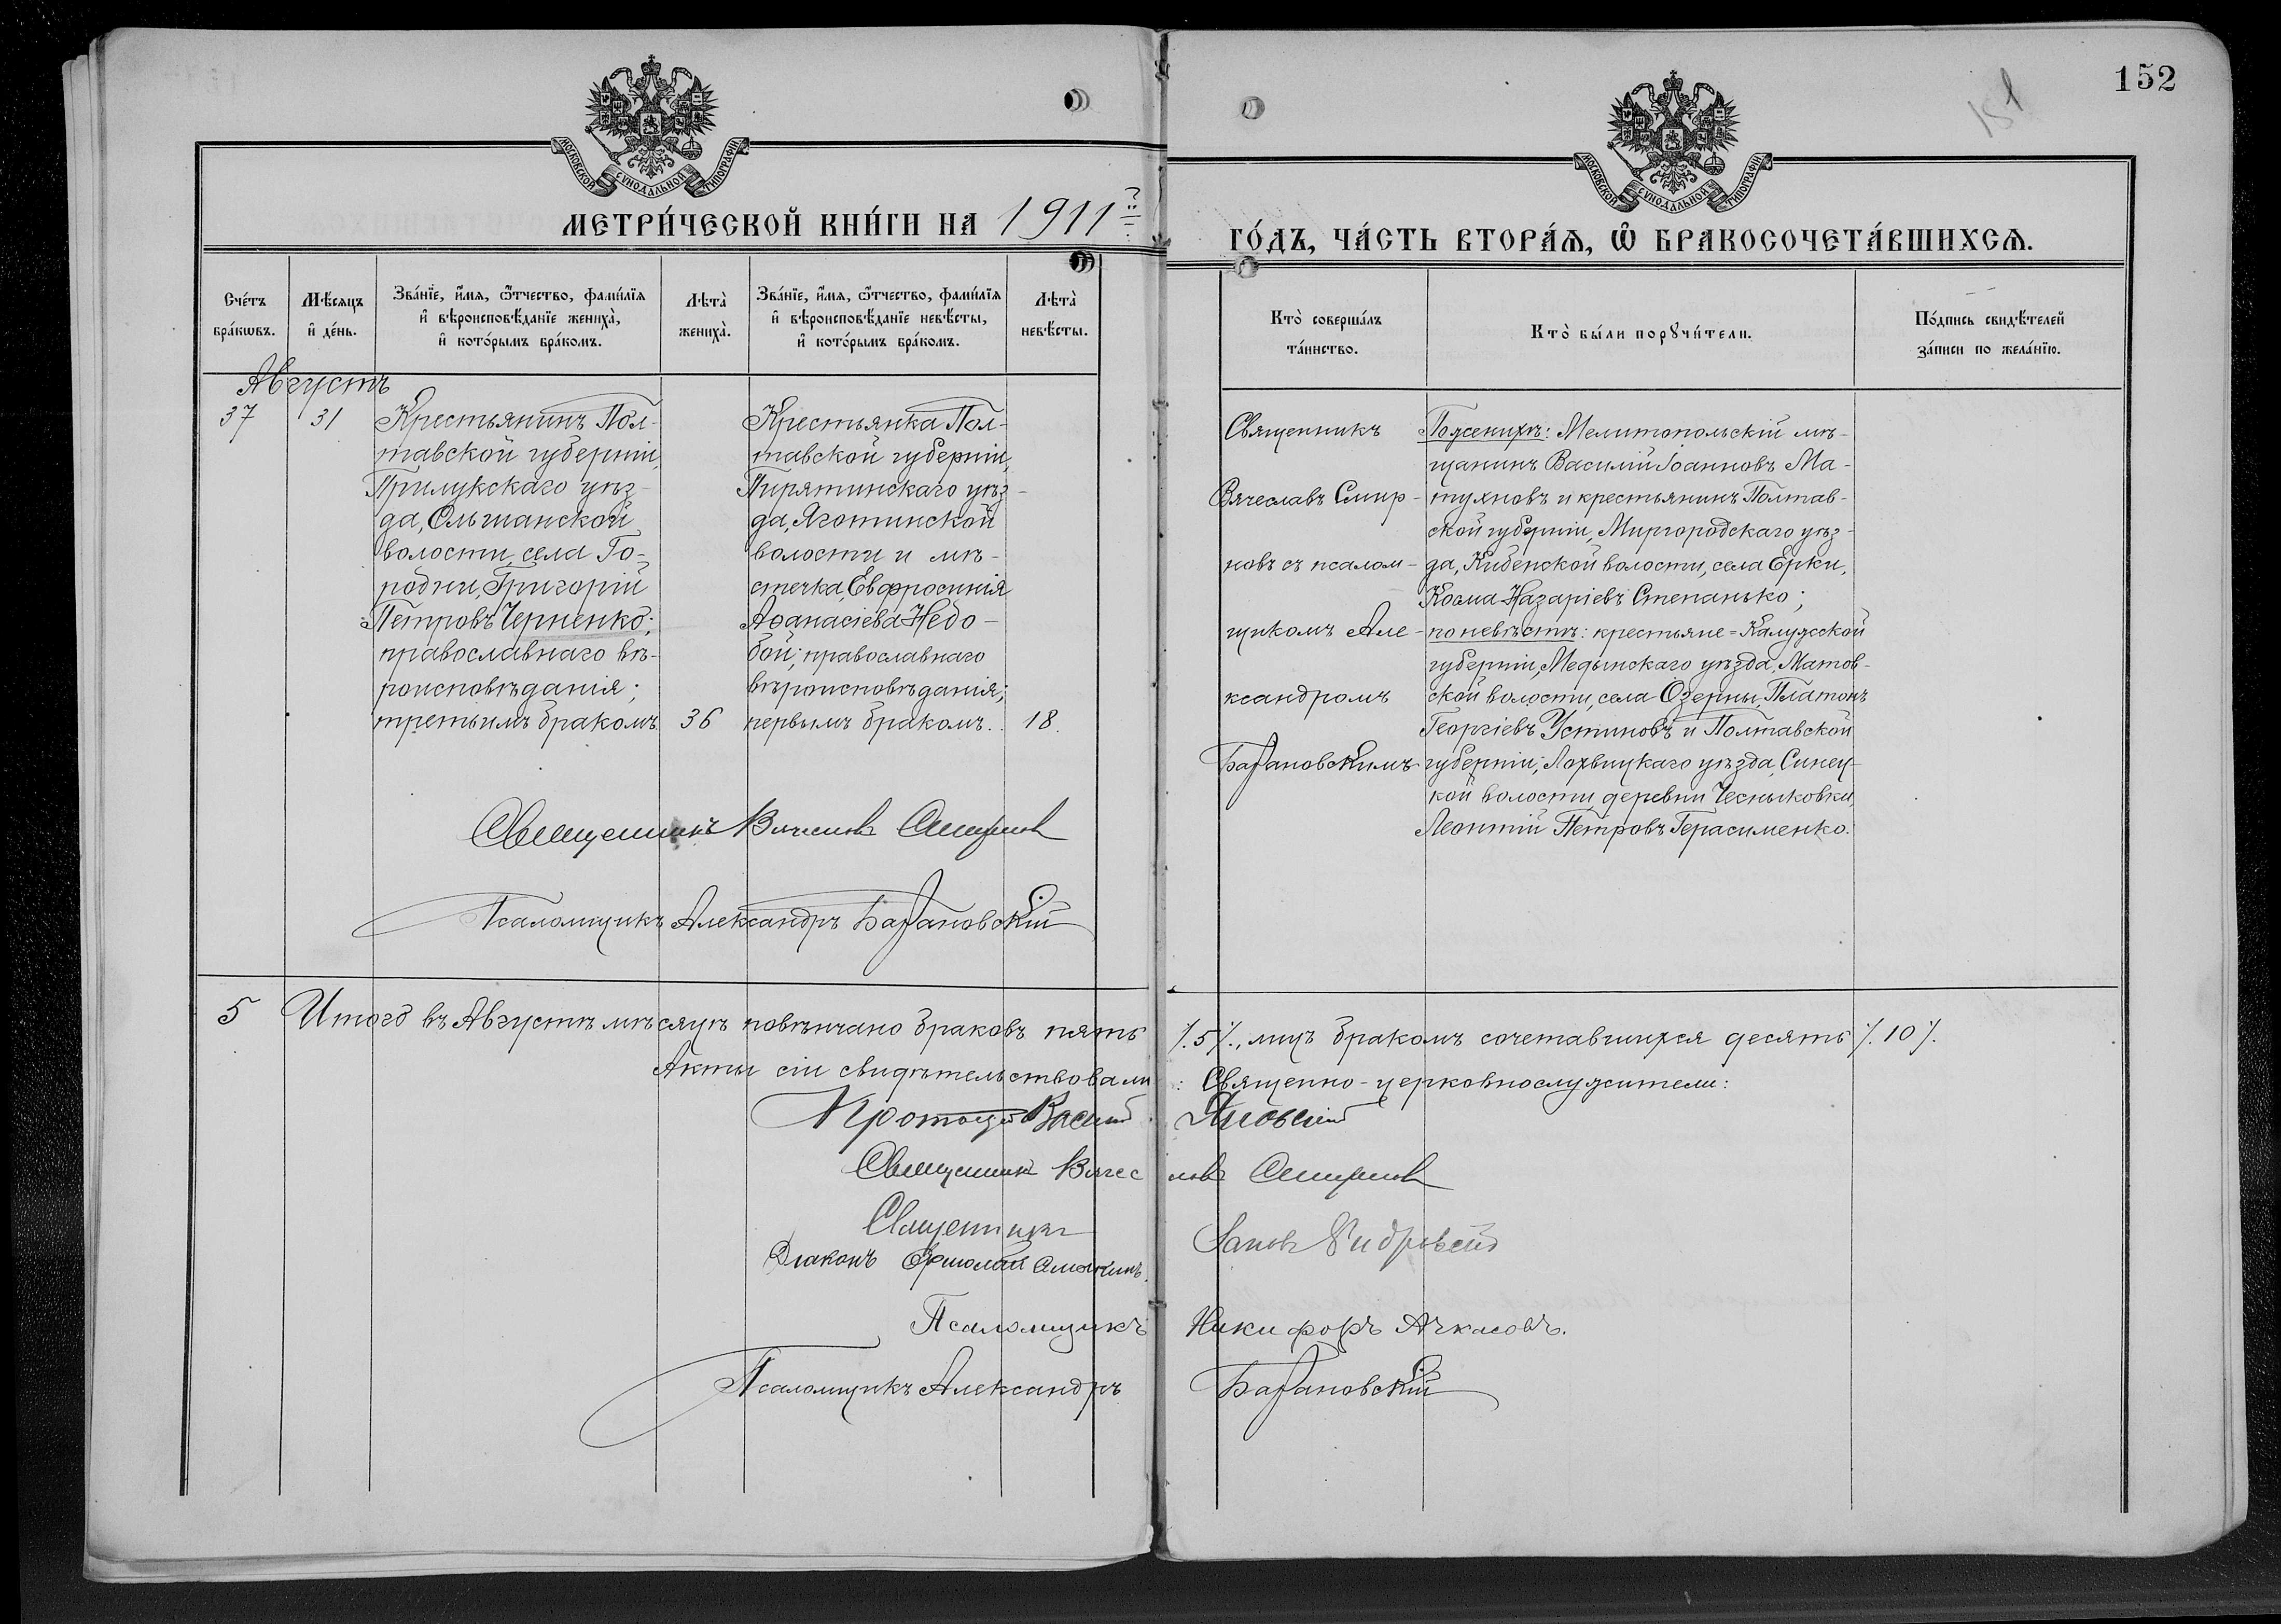 152
151
МОСКОВСКОЙ СУНОДАЛЬНОЙ ТИПОГРАФІИ
МОСКОВСКОЙ СУНОДАЛЬНОЙ ТИПОГРАФІИ
МЕТРИ́ЧЕСКОЙ КНИ́ГИ НА 1911
ГО́ДЪ, ЧА́СТЬ ВТОРА́Ѧ, Ѽ БРАКОСОЧЕТА́ВШИХСѦ.
Сче́тъ
бра́кѡвъ.
Мѣ́сяцъ
и҆ де́нь.
Зва́нїе, и҆́мѧ, ѻ҆́тчество, фами́лїѧ
и҆ вѣроисповѣ́данїе жениха̀,
и҆ кото́рымъ бра́комъ.
Лѣта̀
жениха̀.
Зва́нїе, и҆́мѧ, ѻ҆́тчество, фами́лїѧ
и҆ вѣроисповѣ́данїе невѣ́сты,
и҆ кото́рымъ бра́комъ.
Лѣта̀
невѣ́сты.
Кто̀ соверша́лъ
та́инство.
Кто̀ бы́ли порꙋчи́тели.
По́дпись свидѣ́телей
за́писи по жела́нїю.
Августъ
37
31
Крестьянинъ Пол-
тавской губерніи,
Прилукскаго уѣз-
да, Ольшанской
волости, села Го-
родни, Григорій
Петровъ Черненко;
православнаго вѣ-
роисповѣданія;
третьимъ бракомъ.
36
Крестьянка Пол-
тавской губерніи,
Пирятинскаго уѣз-
да, Яготинской
волости и мѣ-
стечка, Евфросинія
Аѳанасіева Недо-
бой; православнаго
вѣроисповѣданія;
первымъ бракомъ.
18.
Священникъ
Вячеславъ Смир-
новъ съ псалом-
щикомъ Але-
ксандромъ
Барановскимъ
По женихѣ: Мелитопольскій мѣ-
щанинъ Василій Іоанновъ Ма-
тухновъ и крестьянинъ Полтав-
ской губерніи, Миргородскаго уѣз-
да, Кибенской волости, села Ерки,
Косма Назаріевъ Степанько;
по невѣстѣ: крестьяне = Калужской
губерніи, Медынскаго уѣзда, Матов-
ской волости, села Озерны, Платонъ
Георгіевъ Устиновъ и Полтавской
губерніи, Лохвицкаго уѣзда, Синец-
кой волости, деревни Чесныковки,
Леонтій Петровъ Герасименко.
Священникъ Вячеславъ Смирнов
Псаломщикъ Александръ Барановскій
5 Итого въ Августѣ мѣсяцѣ повѣнчано браковъ пять ⁒5⁒, лицъ бракомъ сочетавшихся десять ⁒10⁒.
Акты сіи свидѣтельствовали: Священно-церковнослужители:
Протоіерей Василій Яновскій
Священник Вячеславъ Смирнов
Священникъ
Діаконъ Ермолай
Псаломщикъ Никифоръ Ачкасовъ.
Псаломщикъ Александръ Барановскій